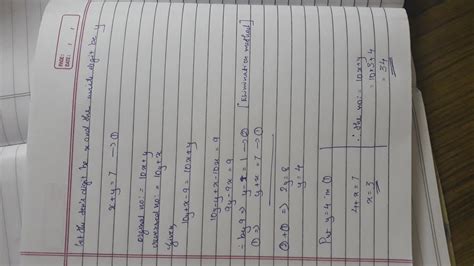 PAGE:
DATE: / /
let the ten's digit be x and the units digit be y
x + y = 7 → ①
original no: = 10x + y
reversed no: = 10y + x
given
10y + x - 9 = 10x + y
10y - y + x - 10x = 9
9y - 9x = 9
÷ by 9 ⇒ y - x = 1 → ②
① ⇒ y + x = 7 → ① [Elimination method]
② + ① ⇒ 2y = 8
y = 4
Put y = 4 in ①
4 + x = 7
x = 3
∴ the no: = 10x + y
= 10 × 3 + 4
= 34